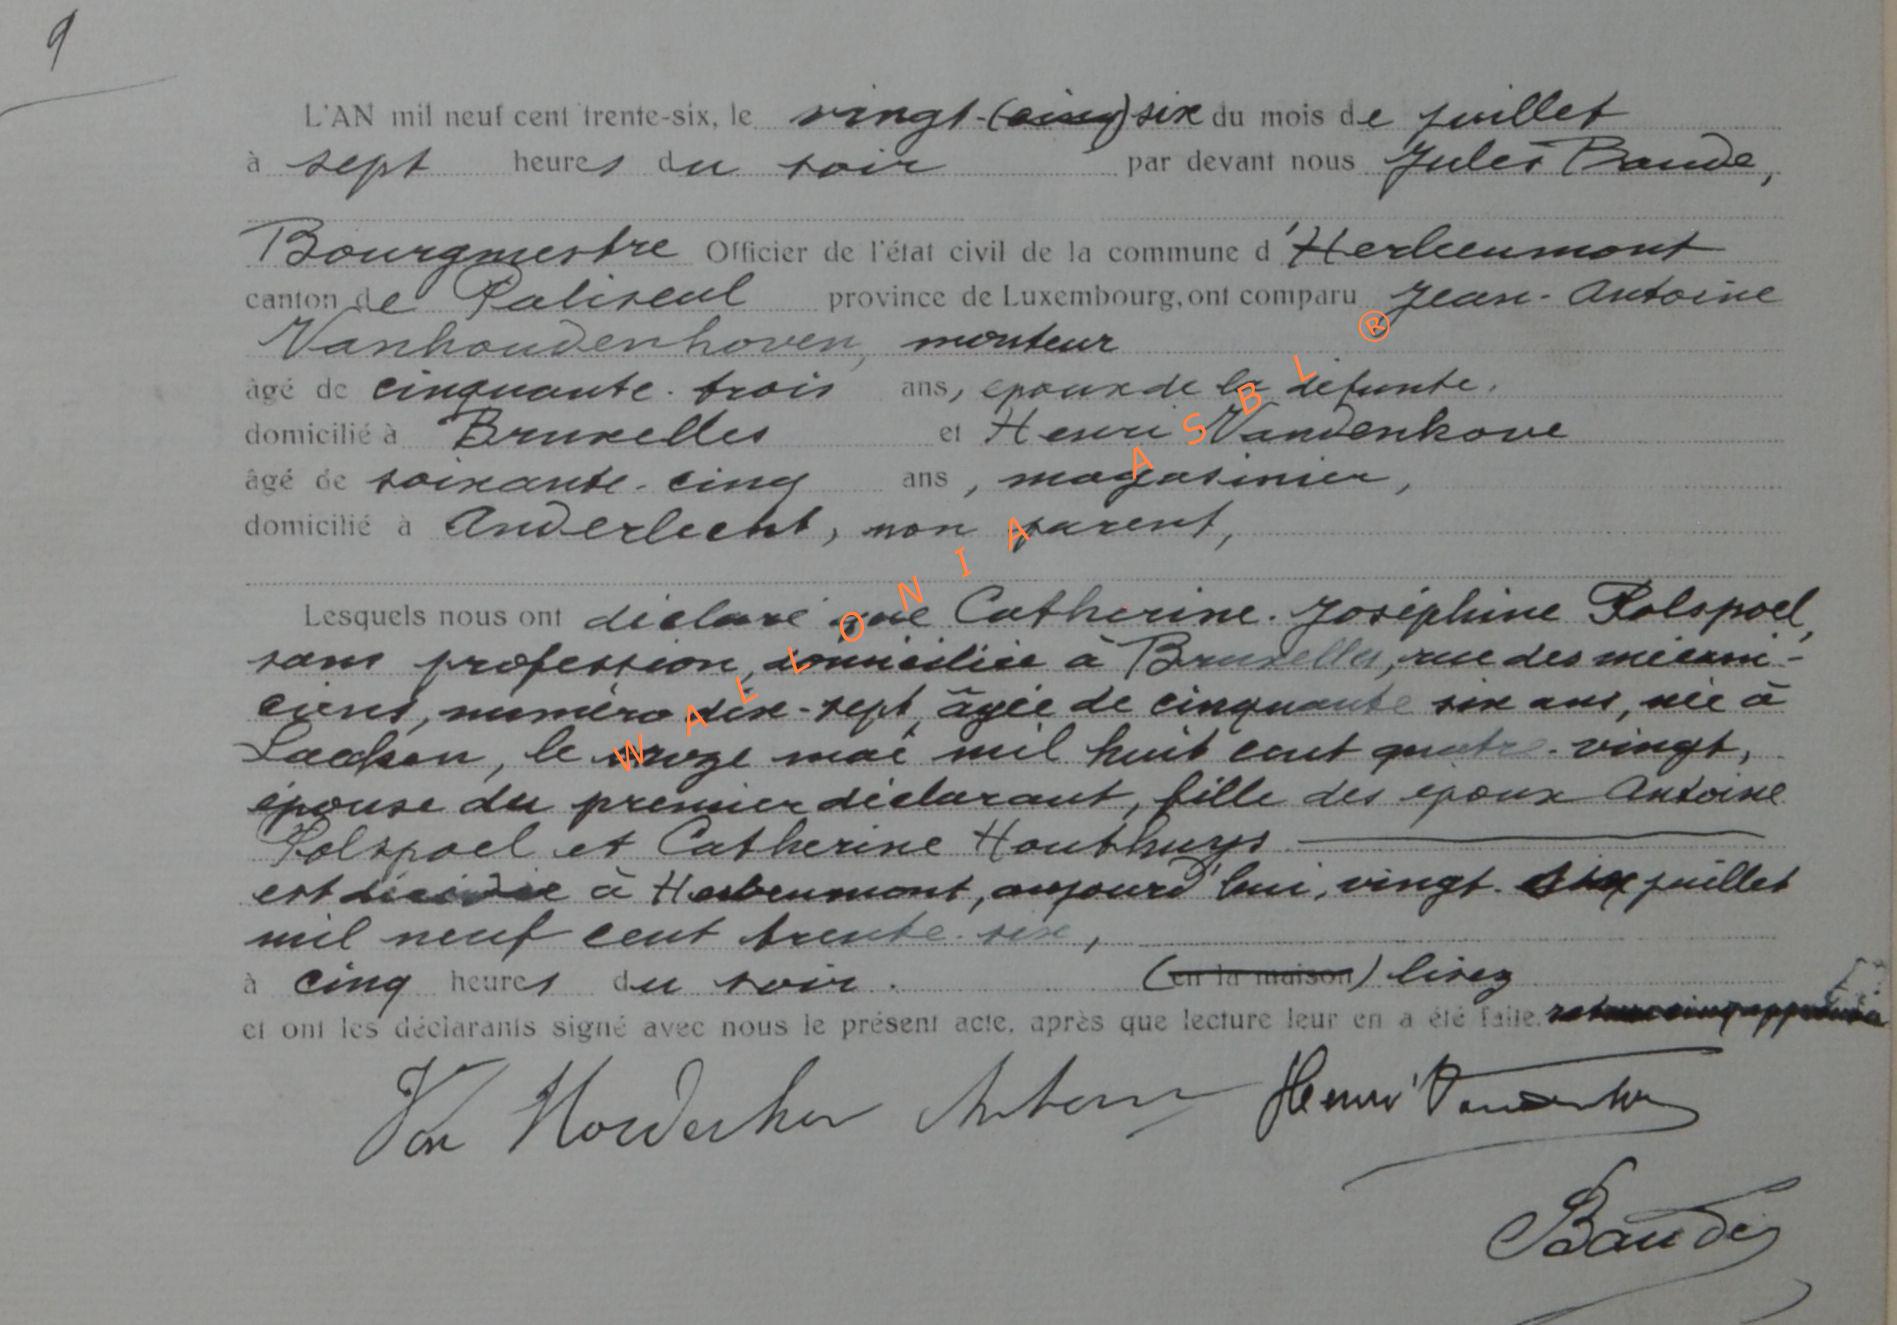 9
L'AN mil neuf cent trente-six, le vingt-(cinq) six du mois de juillet
à sept heures du soir par devant nous Jules Baude,
Bourgmestre Officier de l'état civil de la commune d'Herbeumont
canton de Paliseul province de Luxembourg, ont comparu Jean-Antoine
Vanhoudenhoven, monteur
âgé de cinquante-trois ans, époux de la défunte,
domicilié à Bruxelles et Henri Vandenhove
âgé de soixante-cinq ans, magasinier,
domicilié à Anderlecht, non parent,
Lesquels nous ont déclaré que Catherine-Joséphine Polspoel,
sans profession, domiciliée à Bruxelles, rue des mécani-
ciens, numéro dix-sept, âgée de cinquante six ans, née à
Laeken, le onze mai mil huit cent quatre-vingt,
épouse du premier déclarant, fille des époux Antoine
Polspoel et Catherine Houthuys
est décédée à Herbeumont, aujourd'hui, vingt-six juillet
mil neuf cent trente-six,
à cinq heures du soir. (en la maison) lisez
et ont les déclarants signé avec nous le présent acte, après que lecture leur en a été faite.
Van Houdenhoven Antoine Henri Vandenhove
Baude
WALLONIA ASBL ®